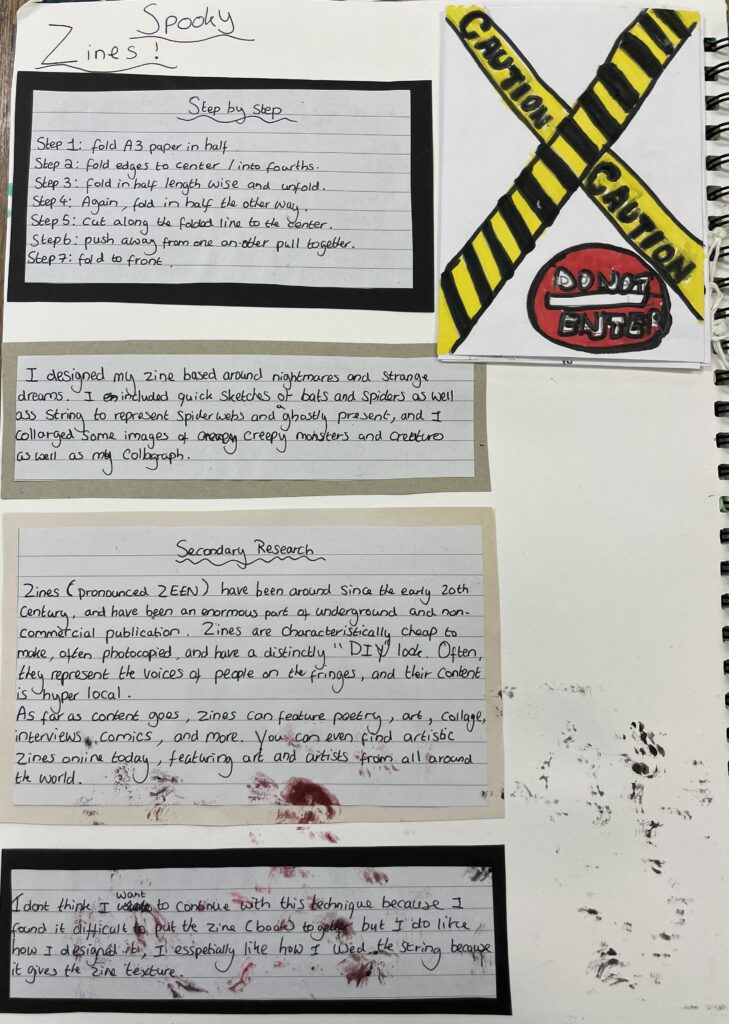 Spooky
Zines!
Step by Step
Step 1: fold A3 paper in half
Step 2: fold edges to center / into fourths.
Step 3: fold in half length wise and unfold.
Step 4: Again, fold in half the other way.
Step 5: cut along the folded line to the center.
Step 6: push away from one an-other pull together.
Step 7: fold to front.
CAUTION
CAUTION
DO NOT
ENTER
I designed my zine based around nightmares and strange
dreams. I included quick sketches of bats and spiders as well
ass string to represent spiderwebs and a ghostly present, and I
collarged some images of creepy monsters and creatures
as well as my collagraph.
Secondary Research
Zines (pronounced ZEEN) have been around since the early 20th
Century, and have been an enormous part of underground and non-
commercial publication. Zines are characteristically cheap to
make, often photocopied, and have a distinctly "DIY" look. Often,
they represent the voices of people on the fringes, and their content
is hyper local.
As far as content goes, zines can feature poetry, art, collage,
interviews, comics, and more. You can even find artistic
zines online today, featuring art and artists from all around
the world.
I dont think I want to continue with this technique because I
found it difficult to put the zine (book) together but I do like
how I designed it, I esspetially like how I used the string because
it gives the zine texture.